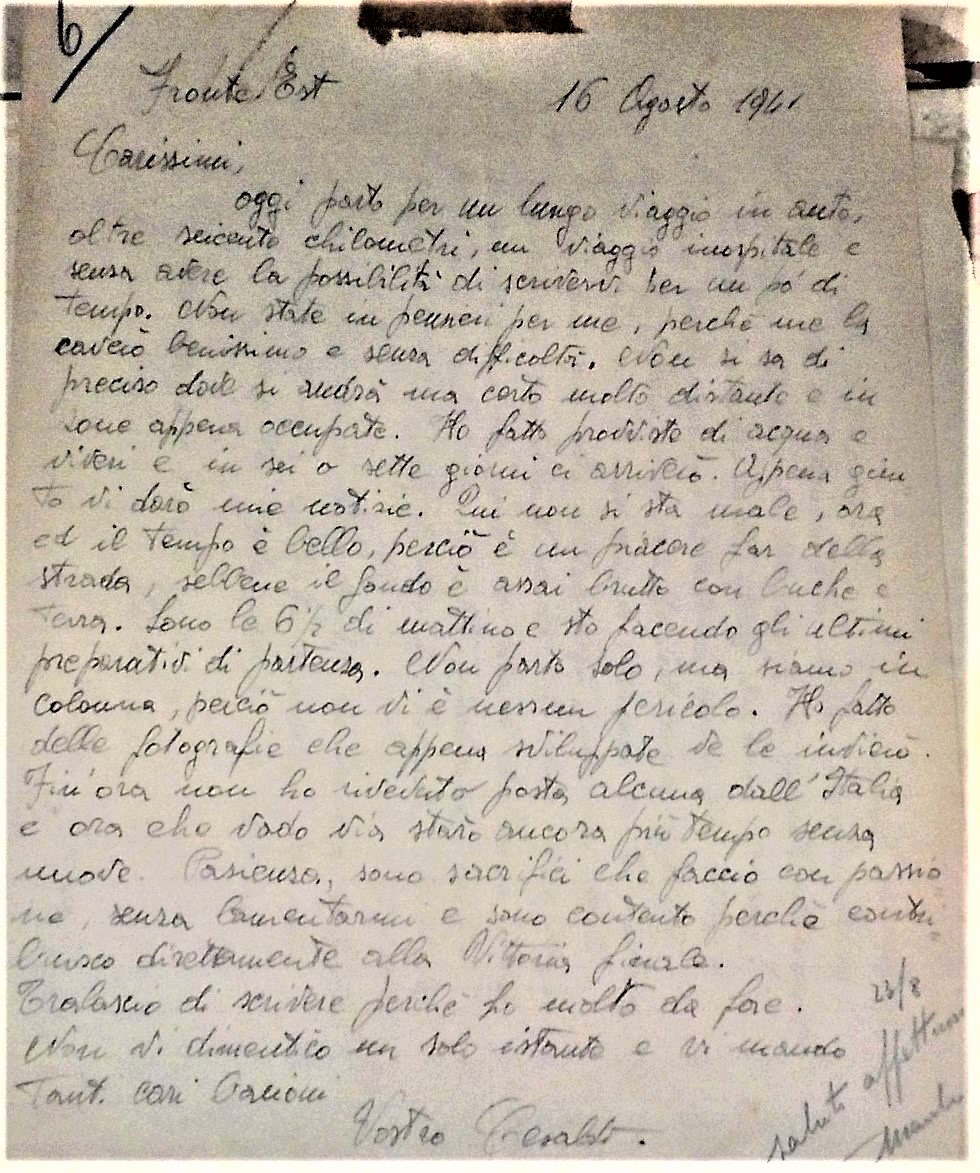 6/
Fronte Est
16 Agosto 1941
Carissimi,
oggi parto per un lungo viaggio in auto,
oltre seicento chilometri, un viaggio inospitale e
senza avere la possibilità di scrivervi per un pó di
tempo. Non state in pensieri per me, perchè me la
caverò benissimo e senza difficoltà. Non si sa di
preciso dove si andrà ma certo molto distante e in
zone appena occupate. Ho fatto provviste di acqua e
viveri e in sei o sette giorni ci arriverò. Appena giun
to vi darò mie notizie. Qui non si sta male, ora
ed il tempo è bello, perciò è un piacere far della
strada, sebbene il fondo è assai brutto con buche e
terra. Sono le 6 1/2 di mattino e sto facendo gli ultimi
preparativi di partenza. Non parto solo, ma siamo in
colonna, perciò non vi è nessun pericolo. Ho fatto
delle fotografie che appena sviluppate ve le invierò.
Fin'ora non ho ricevuto posta alcuna dall'Italia
e ora che vado via starò ancora più tempo senza
nuove. Pazienza, sono sacrifici che faccio con passio
ne, senza lamentarmi e sono contento perchè contri=
buisco direttamente alla Vittoria finale.
Tralascio di scrivere perchè ho molto da fare.
23/8
Non vi dimentico un solo istante e vi mando
Tant. cari bacioni
Vostro
saluto affettuoso